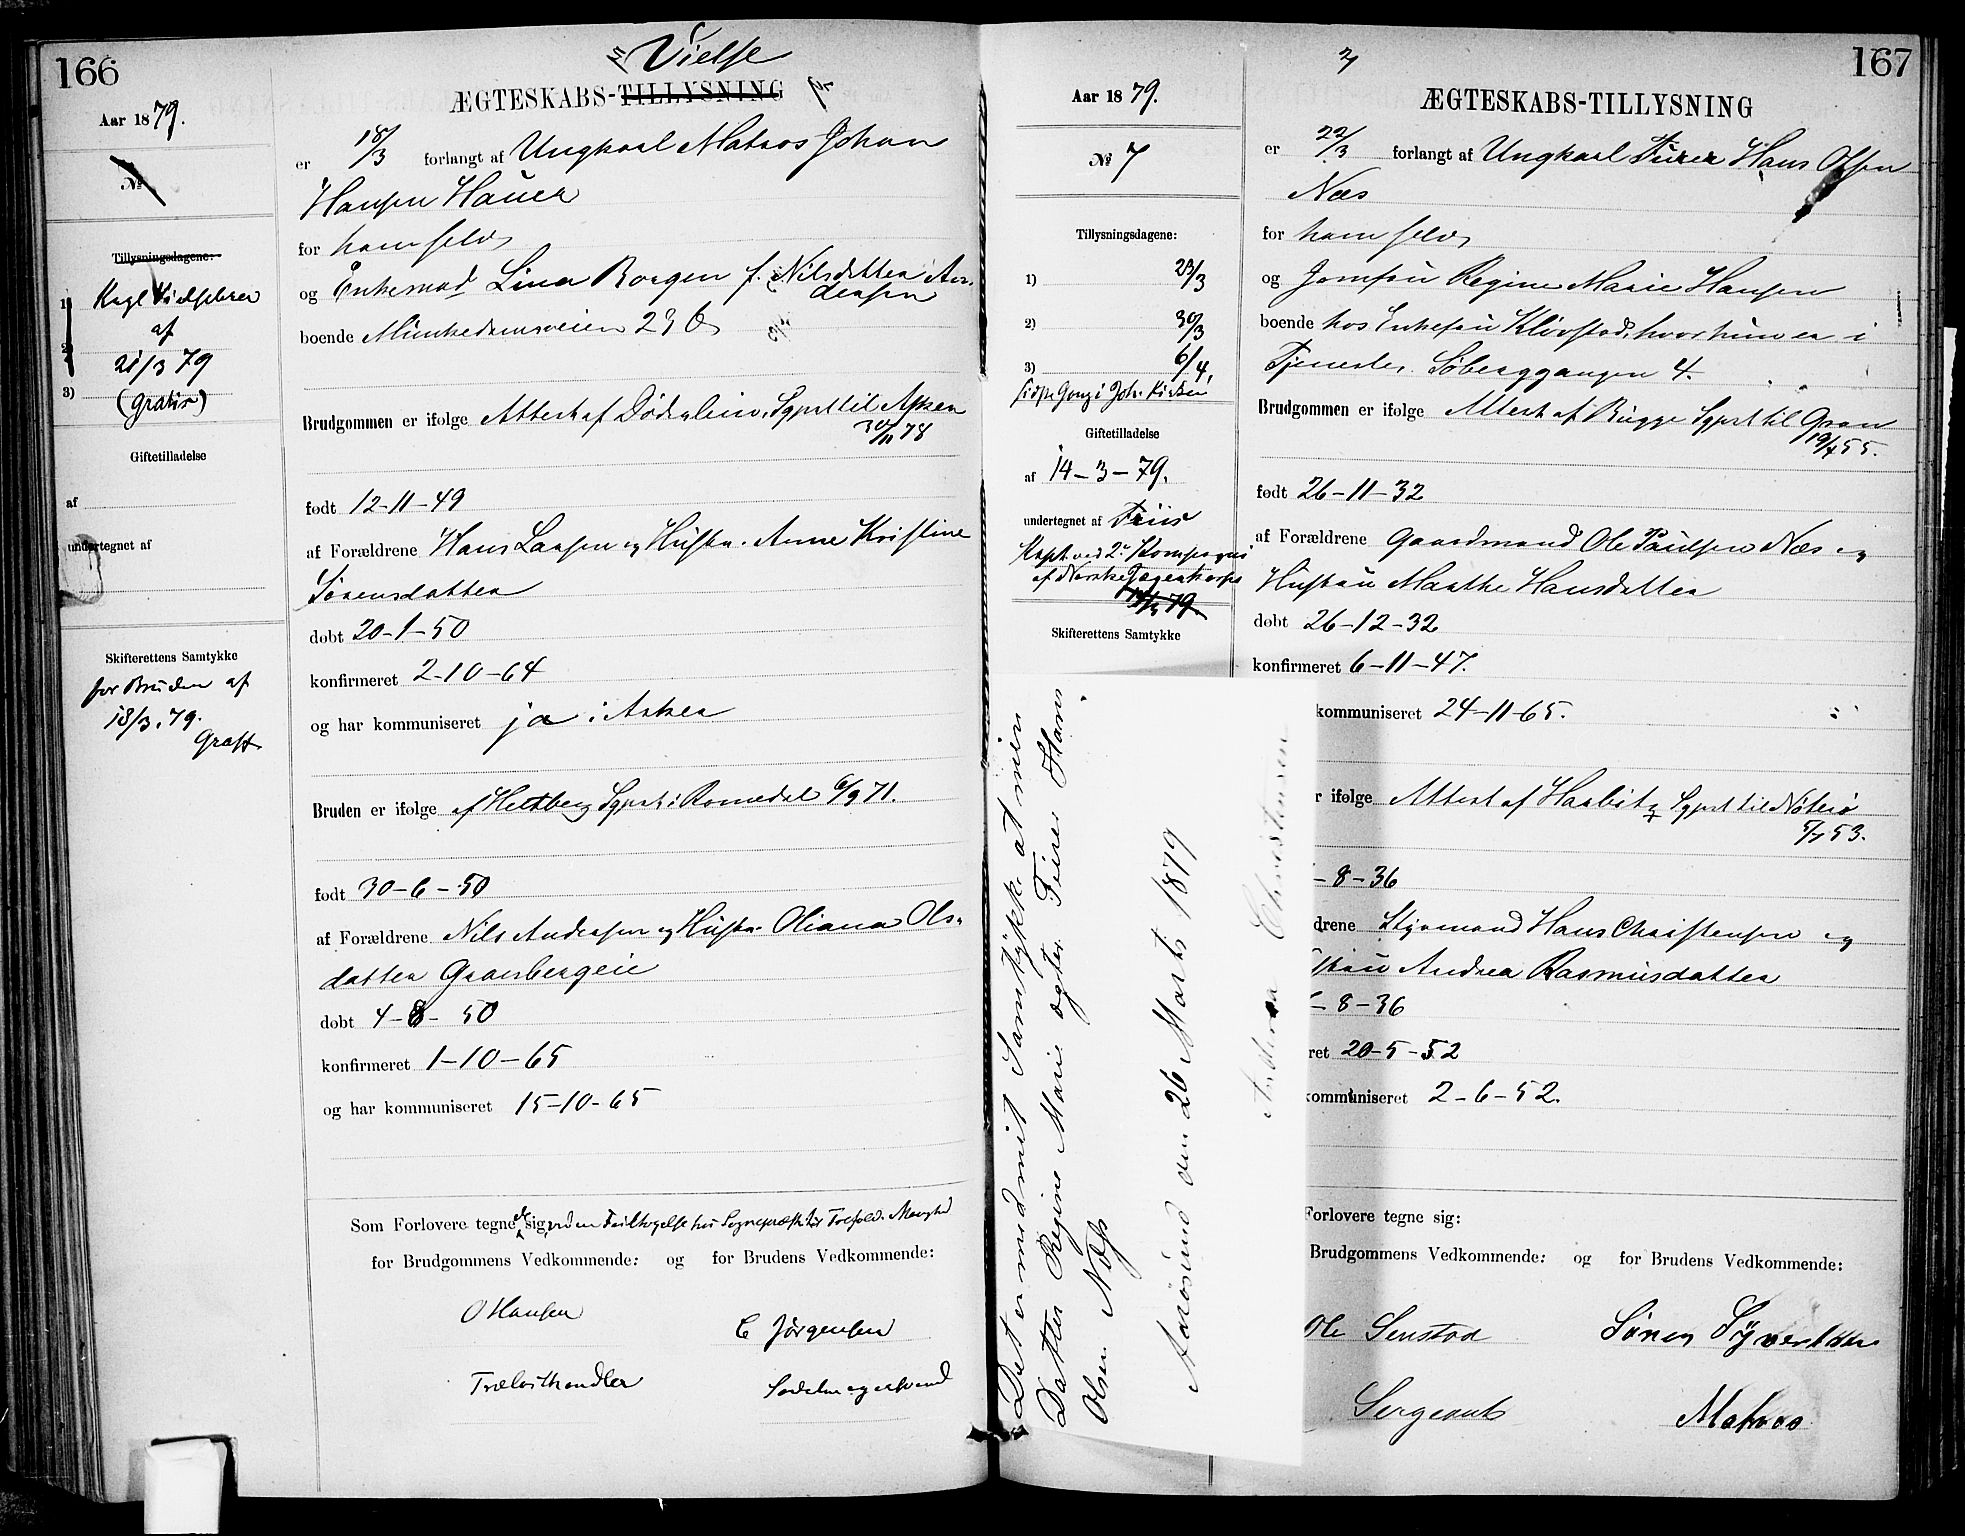 166
Vielse
ÆGTESKABS-TILLYSNING
Aar 1879.
№
Tillysningsdagene:
1)
Kgl Vielsebrev
af
2)
21/3 79
3)
(gratis)
Giftetilladelse
af
undertegnet af
Skifterettens Samtykke
for Bruden af
18/3.79.
er 18/3 forlangt af Ungkarl Matros Johan
Hansen Hauer
for ham selv
og Enkemad Lina Borgen f. Nilsdatter An-
dersen
boende Munkedamsveien 23 b
Brudgommen er ifølge Attest af Døderlein, Sgprst til Asker
30/11 78
født 12-11-49
af Forældrene Hans Larsen og Hustru Anne Kristine
Sørensdatter
døbt 20-1-50
konfirmeret 2-10-64
og har kommuniseret ja i Asker
Bruden er ifølge af Heltberg Sgprst i Romedal 6/9 71.
født 30-6-50
af Forældrene Nils Andersen og Hustru Oliana Ols-
datter Graabergeie
døbt 4-8-50
konfirmeret 1-10-65
og har kommuniseret 15-10-65
Som Forlovere tegnede sig, ved en Feiltagelse hos Sognepræst til
for Brudgommens Vedkommende: og for Brudens Vedkommende:
O Hansen
C Jørgensen
Trælasthandler
Sadelmagersvend
167
Aar 1879.
ÆGTESKABS-TILLYSNING
№ 7
Tillysningsdagene:
1) 23/3
2) 30/3
3) 6/4
sidste Gang i Joh. Kirken
Giftetilladelse
af 14-3-79.
undertegnet af Friis
Kapt. ved 2. Kompagni
af Norske Jægerkorps
Skifterettens Samtykke
er 22/3 forlangt af Ungkarl Furer Hans Olsen
Næs
for ham selv
og Jomfru Regine Marie Hansen
boende hos Enkefru Klövstad, hvor hun er i
Tjeneste. Søberggangen 4.
Brudgommen er ifølge Attest af Bugge Sgprst til Gran
19/4 55.
født 26-11-32
af Forældrene Gaardmand Ole Paulsen Næs og
Hustru Marthe Hansdatter
døbt 26-12-32
konfirmeret 6-11-47.
kommuniseret 24-11-65.
r ifølge Attest af Haabitz Sgprst til Nøterø
5/7 53.
-8-36
drene Styrmand Hans Christensen og
stru Andrea Rasmusdatter
-8-36
ret 20-5-52
kommuniseret 2-6-52.
Forlovere tegne sig:
Brudgommens Vedkommende: og for Brudens Vedkommende:
Ole Senstad
Sören Syvertsen
Sergeant
Matros
Det er med mit Samtykke at min
Datter Regine Marie ægter Furer Hans
Olsen Næss
Aarøsund den 26 Marts 1879
Andrea Christensen